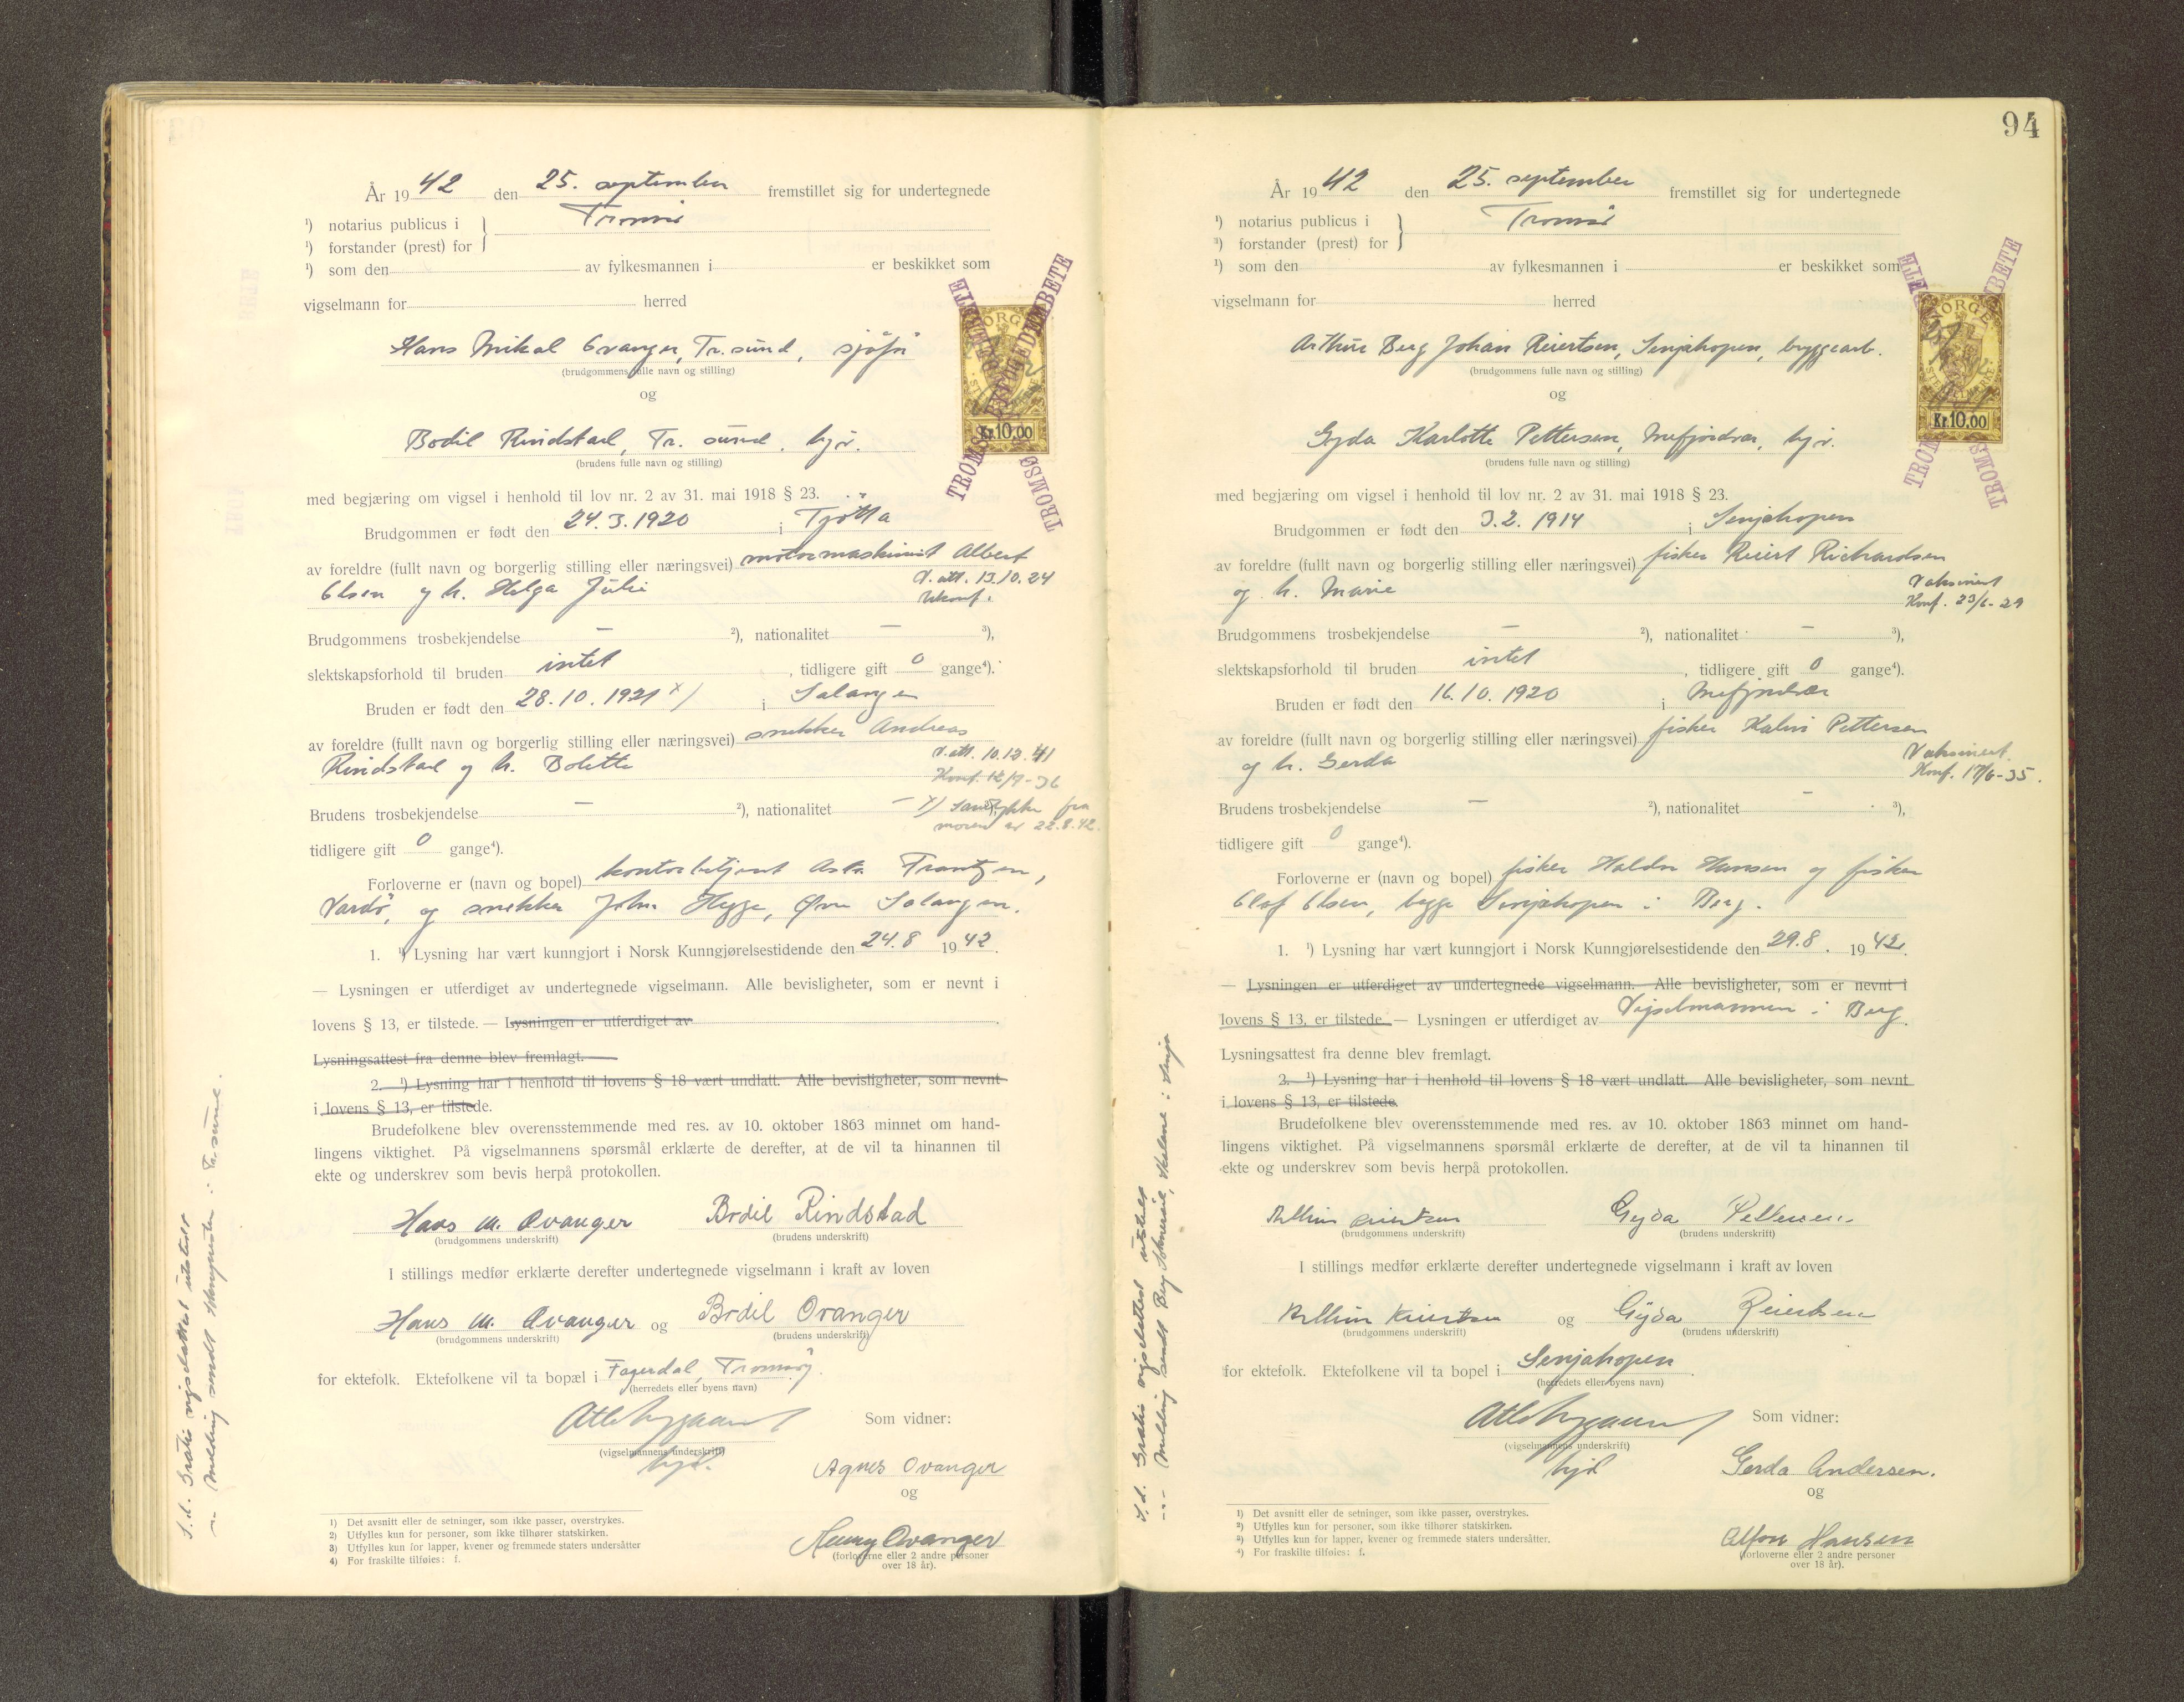 År 1942 den 25. september fremstillet sig for undertegnede
¹) notarius publicus i } Tromsö
¹) forstander (prest) for
¹) som den av fylkesmannen i er beskikket som
vigselmann for herred
Hans Mikal Ovanger, Tr.sund, sjöfü
(brudgommens fulle navn og stilling)
og
Bodil Rindstad, Tr. sund, hjv.
(brudens fulle navn og stilling)
NORGE
Kr.10,00
TROMSØ BYFOGEDEMBETE
TROMSØ
med begjæring om vigsel i henhold til lov nr. 2 av 31. mai 1918 § 23.
Brudgommen er født den 24.3.1920 i Tjötta
av foreldre (fullt navn og borgerlig stilling eller næringsvei) motormaskinist Albert
Olsen og h. Helga Julie
V. att. 13.10.24
Ukonf.
Brudgommens trosbekjendelse — ²), nationalitet — ³),
slektskapsforhold til bruden intet, tidligere gift 0 gange⁴).
Bruden er født den 28.10.1921 x) i Salangen
av foreldre (fullt navn og borgerlig stilling eller næringsvei) snekker Andreas
Rindstad og h. Bolette
V. att. 10.12.41
Konf. 12/7-36
Brudens trosbekjendelse — ²), nationalitet — x) Samtykke fra
moren av 22.8.42.
tidligere gift 0 gange⁴).
Forloverne er (navn og bopel) kontorbetjent Asta Frantzen,
Vardö, og snekker John Hegge, Øvre Salangen.
1. ¹) Lysning har vært kunngjort i Norsk Kunngjørelsestidende den 24.8 1942.
— Lysningen er utferdiget av undertegnede vigselmann. Alle bevisligheter, som er nevnt i
lovens § 13, er tilstede. — Lysningen er utferdiget av
Lysningsattest fra denne blev fremlagt.
2. ¹) Lysning har i henhold til lovens § 18 vært undlatt. Alle bevisligheter, som nevnt
i lovens § 13, er tilstede.
Brudefolkene blev overensstemmende med res. av 10. oktober 1863 minnet om hand-
lingens viktighet. På vigselmannens spørsmål erklærte de derefter, at de vil ta hinannen til
ekte og underskrev som bevis herpå protokollen.
Hans M. Ovanger Bodil Rindstad
(brudgommens underskrift) (brudens underskrift)
I stillings medfør erklærte derefter undertegnede vigselmann i kraft av loven
Hans M. Ovanger og Bodil Ovanger
(brudgommens underskrift) (brudens underskrift)
for ektefolk. Ektefolkene vil ta bopæl i Fagerdal, Tromsöy.
(herredets eller byens navn)
Som vidner:
(vigselmannens underskrift)
Agnes Ovanger
og
Henry Ovanger
(forloverne eller 2 andre personer
over 18 år).
1) Det avsnitt eller de setninger, som ikke passer, overstrykes.
2) Utfylles kun for personer, som ikke tilhører statskirken.
3) Utfylles kun for lapper, kvener og fremmede staters undersåtter
4) For fraskilte tilføies: f.
S.d. Gratis vigselattest utstedt
-"- Melding sendt i Tr.sund.
94
År 1942 den 25. september fremstillet sig for undertegnede
¹) notarius publicus i } Tromsö
³) forstander (prest) for
¹) som den av fylkesmannen i er beskikket som
vigselmann for herred
Arthur Berg Johan Reiertsen, Senjahopen, bryggearb.
(brudgommens fulle navn og stilling)
og
Gyda Karlotte Pettersen, Mefjordvær, hjv.
(brudens fulle navn og stilling)
NORGE
Kr.10,00
med begjæring om vigsel i henhold til lov nr. 2 av 31. mai 1918 § 23.
Brudgommen er født den 3.2.1914 i Senjahopen
av foreldre (fullt navn og borgerlig stilling eller næringsvei) fisker Reiert Richardsen
og h. Marie
Vaksinert
Konf. 23/6-29
Brudgommens trosbekjendelse — ²), nationalitet — ³),
slektskapsforhold til bruden intet, tidligere gift 0 gange⁴).
Bruden er født den 16.10.1920 i Mefjordvær
av foreldre (fullt navn og borgerlig stilling eller næringsvei) fisker Pettersen
og h. Gerda
Vaksinert.
Konf. 17/6-35.
Brudens trosbekjendelse — ²), nationalitet — ³),
tidligere gift 0 gange⁴).
Forloverne er (navn og bopel) fisker Haldor Hansen og fisker
Olaf Olsen, begge Senjahopen i Berg.
1. ¹) Lysning har vært kunngjort i Norsk Kunngjørelsestidende den 29.8. 1942.
— Lysningen er utferdiget av undertegnede vigselmann. Alle bevisligheter, som er nevnt i
lovens § 13, er tilstede. — Lysningen er utferdiget av Vigselmannen i Berg.
Lysningsattest fra denne blev fremlagt.
2. ¹) Lysning har i henhold til lovens § 18 vært undlatt. Alle bevisligheter, som nevnt
i lovens § 13, er tilstede.
Brudefolkene blev overensstemmende med res. av 10. oktober 1863 minnet om hand-
lingens viktighet. På vigselmannens spørsmål erklærte de derefter, at de vil ta hinannen til
ekte og underskrev som bevis herpå protokollen.
Arthur Reiertsen Gyda Pettersen
(brudgommens underskrift) (brudens underskrift)
I stillings medfør erklærte derefter undertegnede vigselmann i kraft av loven
Arthur Reiertsen og Gyda Reiertsen
(brudgommens underskrift) (brudens underskrift)
for ektefolk. Ektefolkene vil ta bopel i Senjahopen.
(herredets eller byens navn)
Som vidner:
(vigselmannens underskrift)
Gerda Andersen.
og
Alfon Hansen
(forloverne eller 2 andre personer
over 18 år).
1) Det avsnitt eller de setninger, som ikke passer, overstrykes.
2) Utfylles kun for personer, som ikke tilhører statskirken.
3) Utfylles kun for lapper, kvener og fremmede staters undersåtter.
4) For fraskilte tilføies: f.
S.d. Gratis vigselattest utsted
-"- Melding sendt Berg i Senja